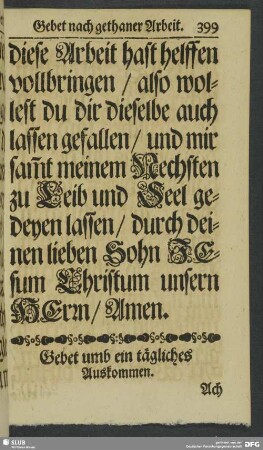 Gebet nach gethaner Arbeit. 399
diese Arbeit hast helffen
vollbringen / also wol-
lest du dir dieselbe auch
lassen gefallen / und mir
sam̃t meinem Nechsten
zu Leib und Seel ge-
deyen lassen / durch dei-
nen lieben Sohn JE-
sum Christum unsern
HErrn / Amen.
Gebet umb ein tägliches
Auskommen.
Ach
SLUB
DFG